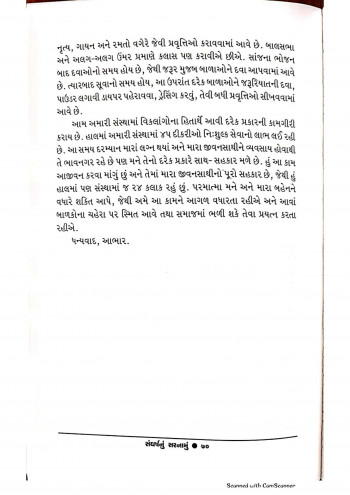 નૃત્ય, ગાયન અને રમતો વગેરે જેવી પ્રવૃત્તિઓ કરાવવામાં આવે છે. બાલસભા
અને અલગ-અલગ ઉંમર પ્રમાણે કલાસ પણ કરાવીએ છીએ. સાંજના ભોજન
બાદ દવાઓનો સમય હોય છે, જેથી જરૂર મુજબ બાળાઓને દવા આપવામાં આવે
છે. ત્યારબાદ સૂવાનો સમય હોય, આ ઉપરાંત દરેક બાળાઓને જરૂરિયાતની દવા,
પાઉડર લગાવી ડાયપર પહેરાવવા, ડ્રેસિંગ કરવું, તેવી બધી પ્રવૃત્તિઓ સીખવવામાં
આવે છે.
આમ અમારી સંસ્થામાં વિકલાંગોના હિતાર્થે આવી દરેક પ્રકારની કામગીરી
કરાય છે. હાલમાં અમારી સંસ્થામાં ૪૫ દીકરીઓ નિઃશુલ્ક સેવાનો લાભ લઈ રહી
છે. આ સમય દરમ્યાન મારાં લગ્ન થયાં અને મારા જીવનસાથીને વ્યવસાય હોવાથી
તે ભાવનગર રહે છે પણ મને તેનો દરેક પ્રકારે સાથ-સહકાર મળે છે. હું આ કામ
આજીવન કરવા માંગું છું અને તેમાં મારા જીવનસાથીનો પૂરો સહકાર છે, જેથી હું
હાલમાં પણ સંસ્થામાં જ ૨૪ કલાક રહું છું. પરમાત્મા મને અને મારા બહેનને
વધારે શક્તિ આપે, જેથી અમે આ કામને આગળ વધારતા રહીએ અને આવાં
બાળકોના ચહેરા પર સ્મિત આવે તથા સમાજમાં ભળી શકે તેવા પ્રયત્ન કરતા
રહીએ.
ધન્યવાદ, આભાર.
સંઘર્ષનું સરનામું ● ૭૦
Scanned with CamScanner